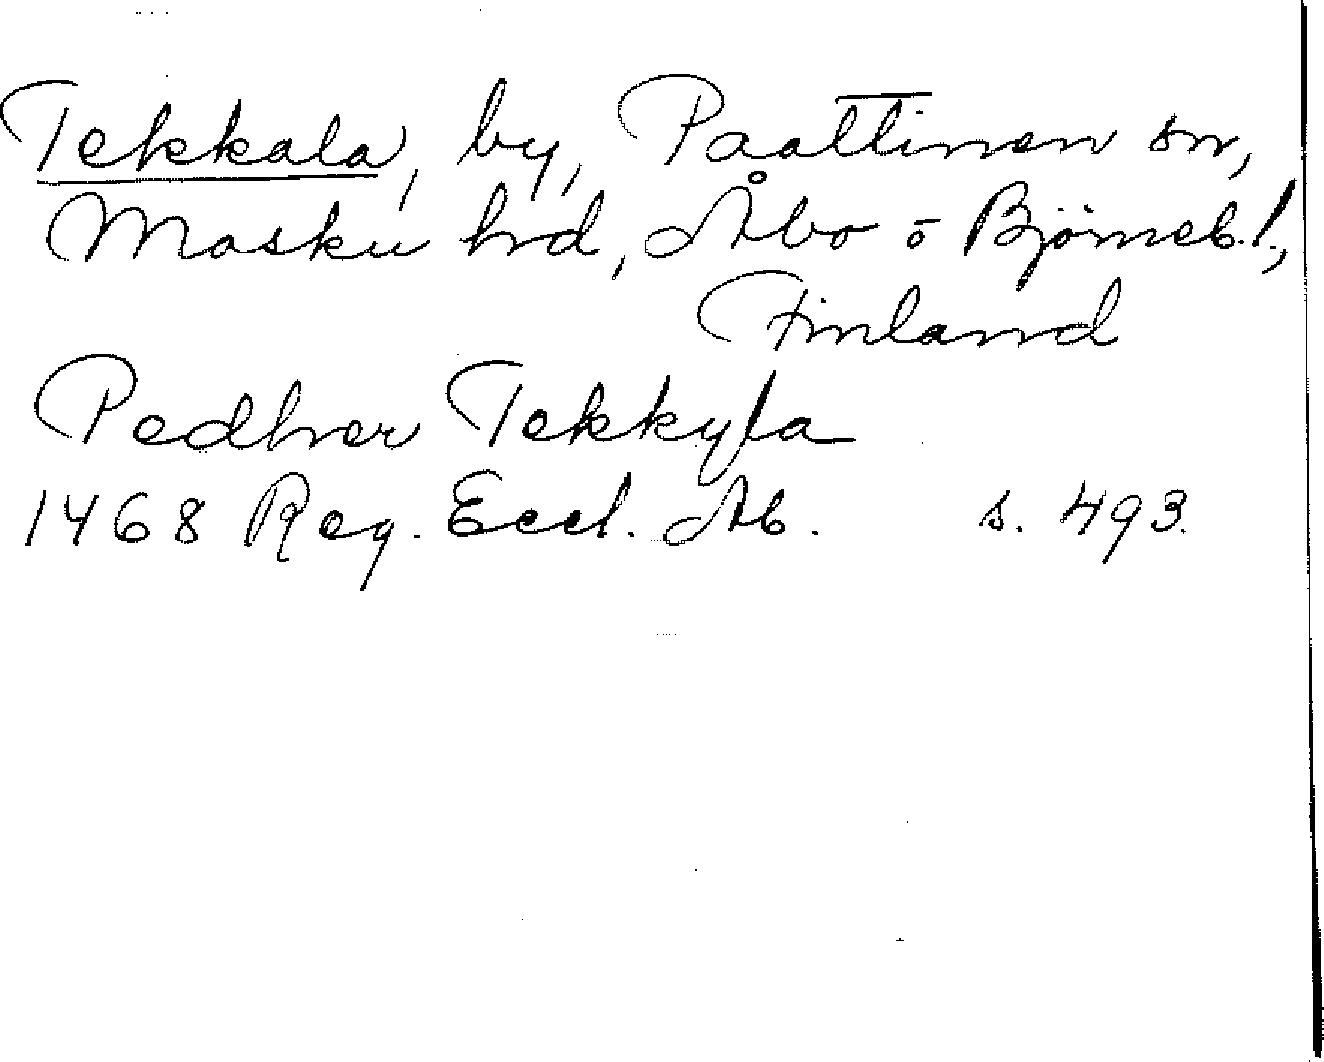 Tekkala, by, Paattinen sn,
Masku hd, Åbo o Björneb. l.,
Finland
Pedher Tekkyla
1468 Reg. Eccl. Ab. s. 493.